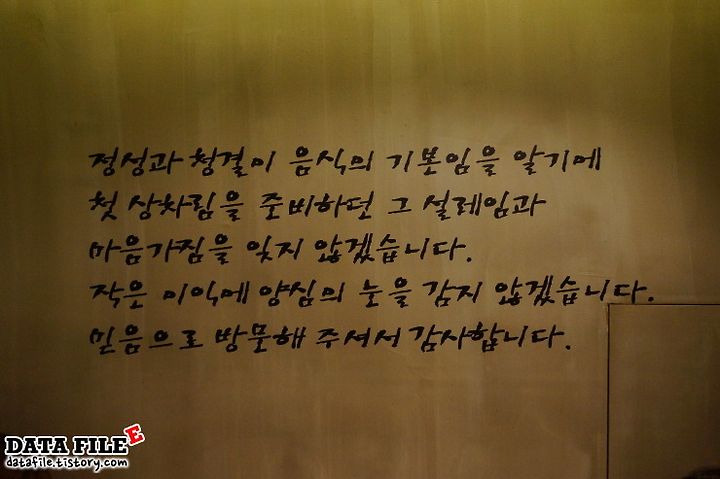 정성과 청결이 음식의 기본임을 알기에
첫 상차림을 준비하던 그 설레임과
마음가짐을 잊지 않겠습니다.
작은 이익에 양심의 눈을 감지 않겠습니다.
믿음으로 방문해 주셔서 감사합니다.
DATA FILE E
datafile.tistory.com